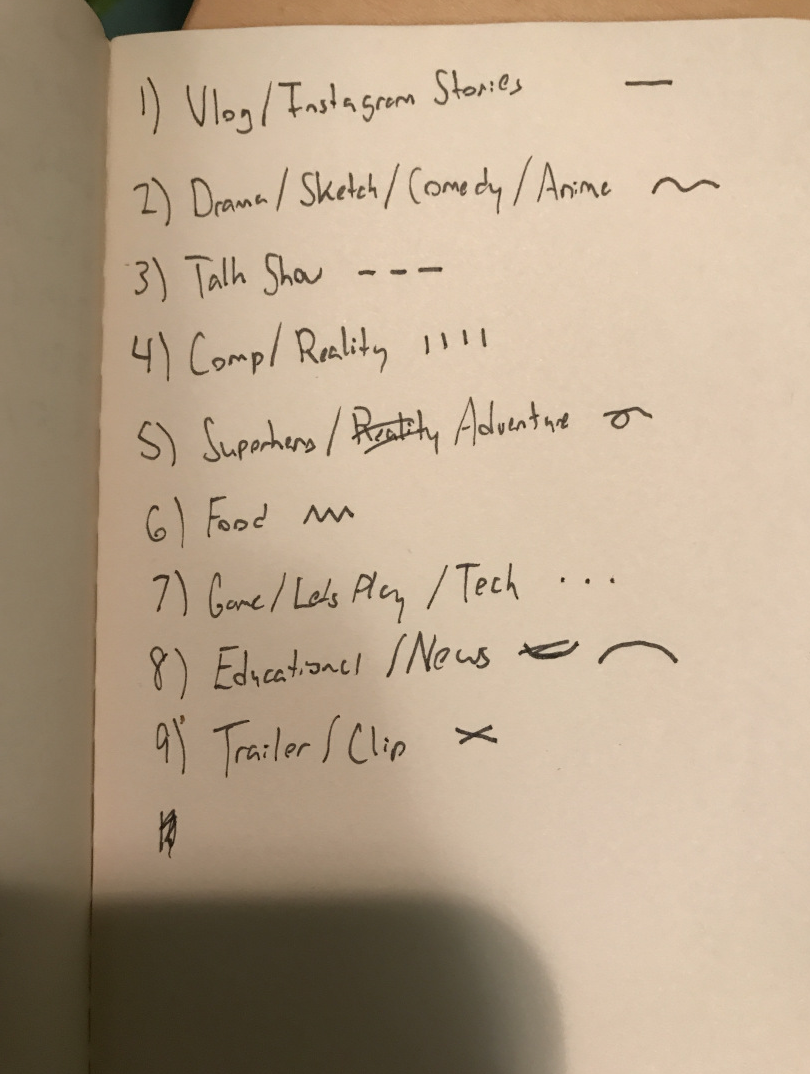 1) Vlog/Instagram Stories —
2) Drama/Sketch/Comedy/Anime
3) Talk Show - - -
4) Comp/Reality ı ı ı ı
5) Superhero/Reality Adventure
6) Food
7) Game/Lets Play/Tech ...
8) Educational/News
9) Trailer/Clip ×